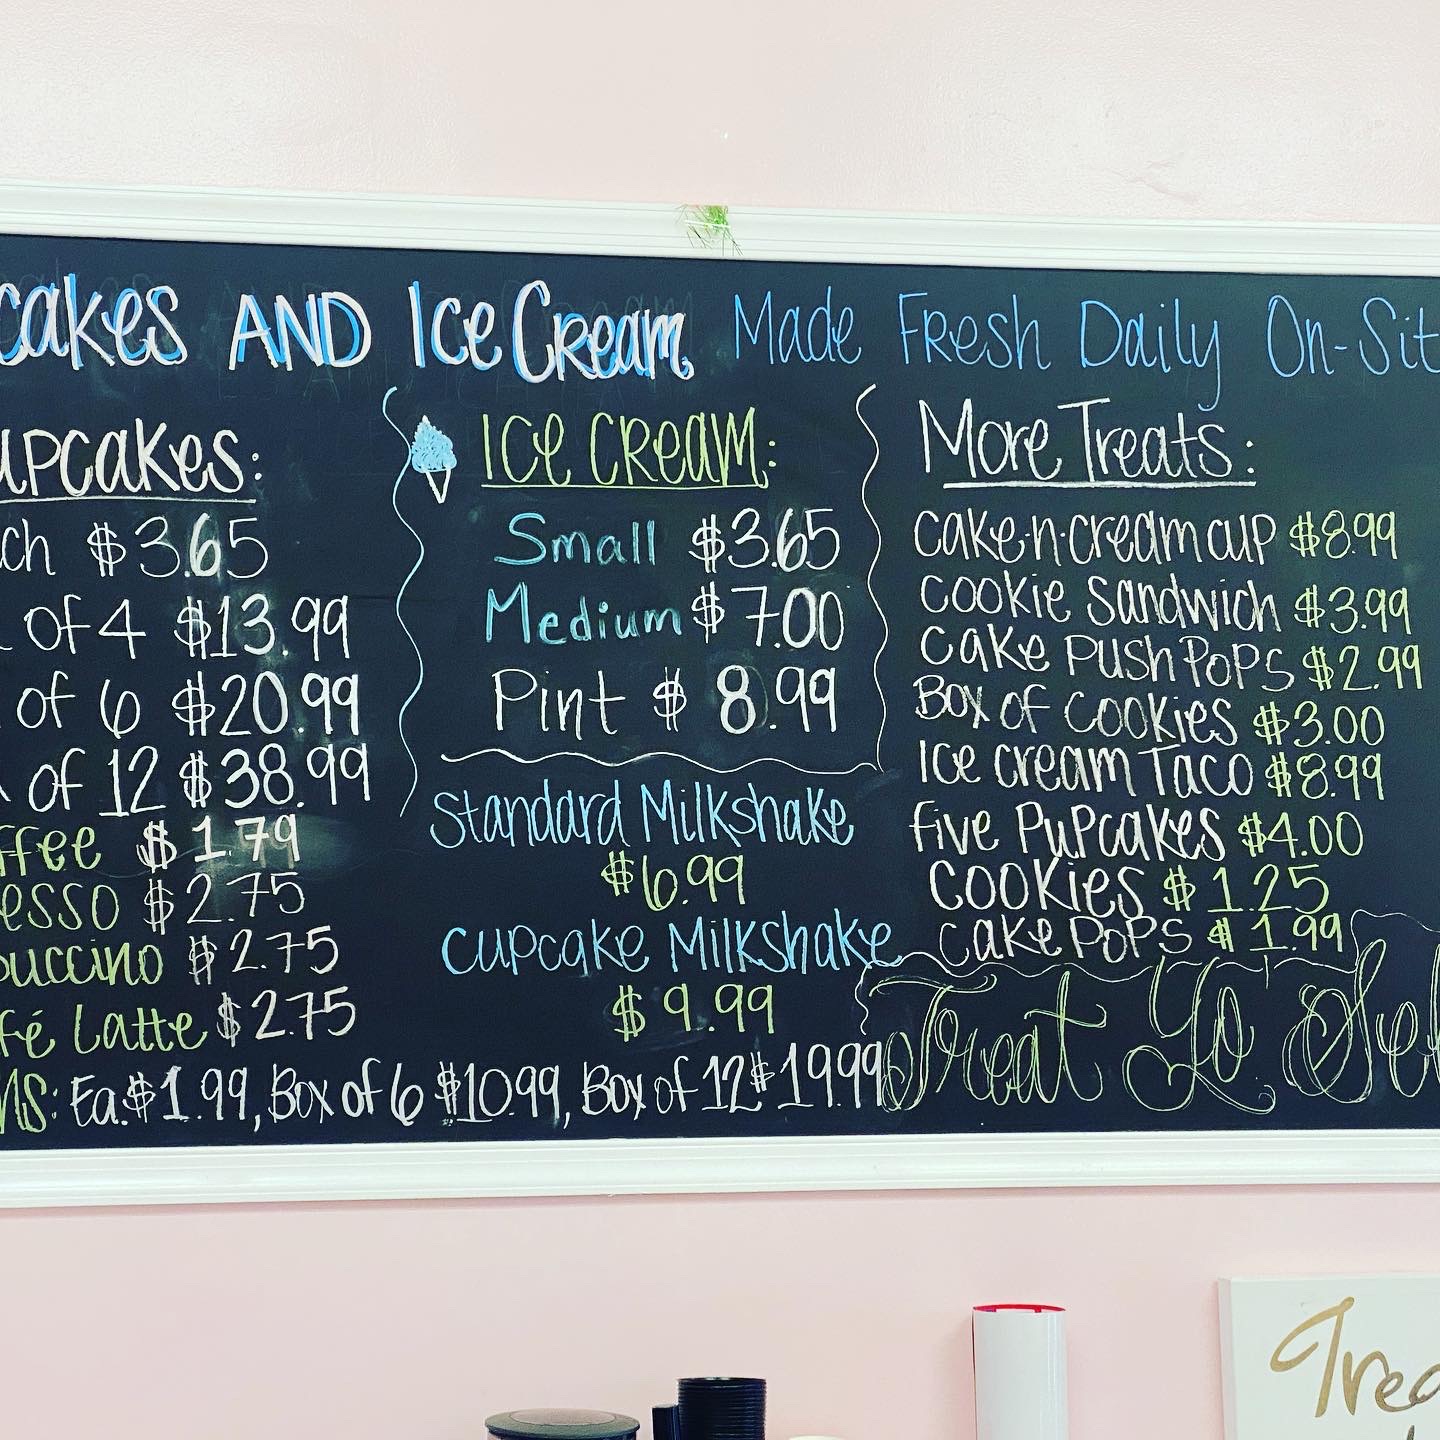 cakes AND Ice Cream Made Fresh Daily On-Sit
upcakes:
ch $3.65
of 4 $13.99
of 6 $20.99
of 12 $38.99
ffee $1.79
esso $2.75
puccino $2.75
fé Latte $2.75
Ice Cream:
Small $3.65
Medium $7.00
Pint $8.99
Standard Milkshake
$6.99
Cupcake Milkshake
$9.99
More Treats:
cake-n-cream cup $8.99
cookie sandwich $3.99
cake PushPoPs $2.99
Box of Cookies $3.00
Ice cream Taco $8.99
five PuPcakes $4.00
Cookies $1.25
cake PoPs $1.99
Ms: Ea. $1.99, Box of 6 $10.99, Box of 12 $19.99
Treat Yo Sel
Trea